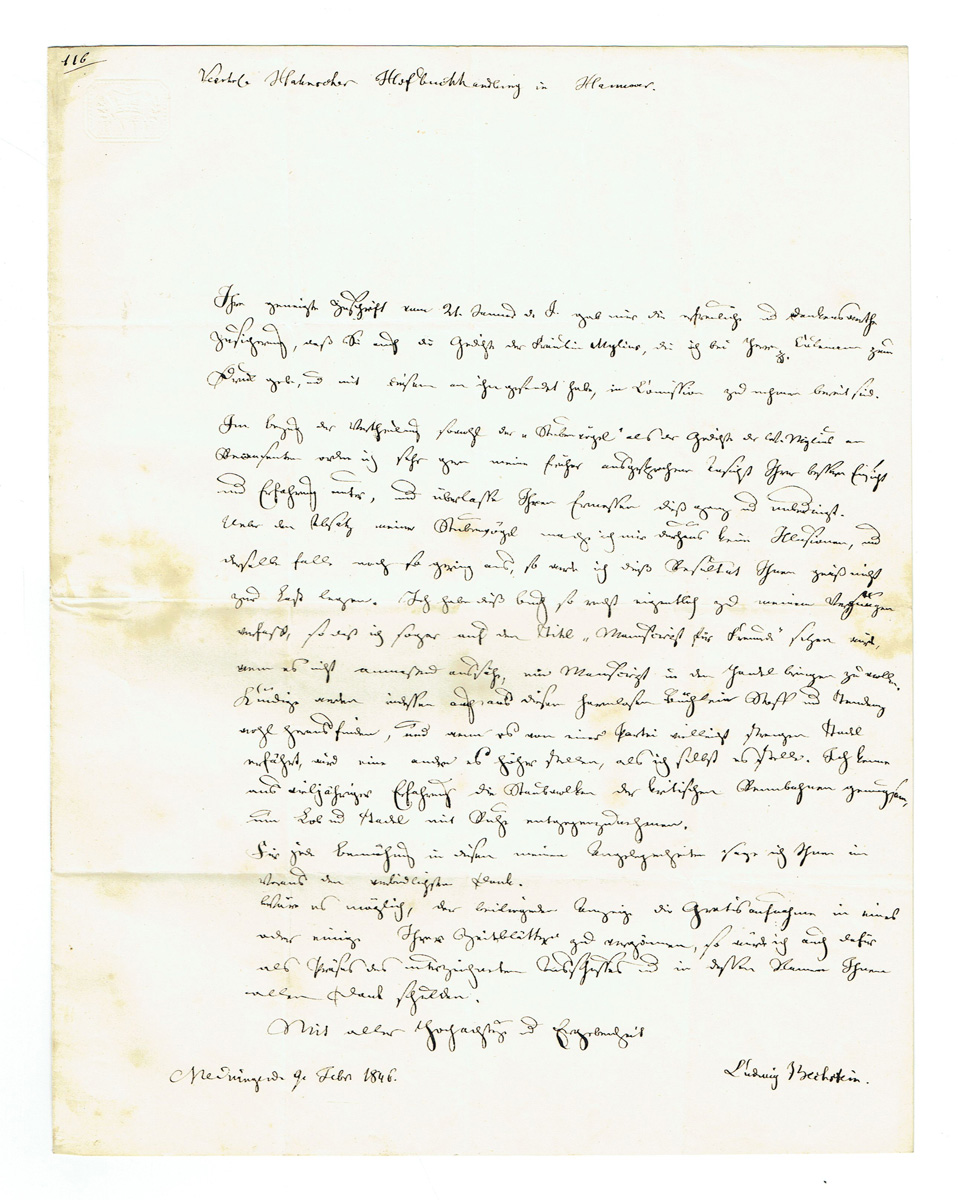 116
Verehrl. Hahnscher Hofbuchhandlung in Hannover.
Ihre geneigte Zuschrift vom 21. Januar d. J. gab mir die erfreuliche und dankenswerthe
Zusicherung, daß Sie auch die Gedichte der Fräulein Mylius, die ich bei Herrn Culemann zum
Druck gebe, und mit diesem an ihn gesendet habe, in Comission zu nehmen bereit sind.
In bezug der Vertheilung sowohl der „Stubenvögel" als der Gedichte der W. Mylius an
Recensenten ordne ich sehr gern meine früher ausgesprochene Ansicht Ihrer bessern Einsicht
und Erfahrung unter, und überlasse Ihrem Ermessen dieß ganz und unbedingt.
Ueber den Absatz meiner Stubenvögel mache ich mir durchaus keine Illusionen, und
derselbe falle noch so gering aus, so werde ich dieß Resultat Ihnen gewiß nicht
zur Last legen. Ich habe dieß buch so recht eigentlich zu meinem Vergnügen
verfaßt, so daß ich sogar auf den Titel „Manuscript für Freunde" setzen würde,
wenn es nicht anmaßend aussähe, ein Manuscript in den Handel bringen zu wollen.
Kundige werden indessen auch aus diesem harmlosen Büchlein Stoff und Tendenz
wohl herausfinden, und wenn es von einer Partei vielleicht strengen Tadel
erfährt, wird eine andre es höher stellen, als ich selbst es stelle. Ich kenne
aus vieljähriger Erfahrung die Staubwolken der kritischen Rennbahnen genugsam,
um Lob und Tadel mit Ruhe entgegenzunehmen.
Für jede Bemühung in diesen meinen Angelegenheiten sage ich Ihnen im
Voraus den verbindlichsten Dank.
Wäre es möglich, der beiliegenden Anzeige die Gratisaufnahme in eines
oder einige Ihrer Zeitblätter zu vergönnen, so würde ich auch dafür
als Präses des unterzeichneten Ausschusses und in dessen Namen Ihnen
allen Dank schulden.
Mit aller Hochachtung und Ergebenheit
Meiningen den 9. Febr 1846.
Ludwig Bechstein.